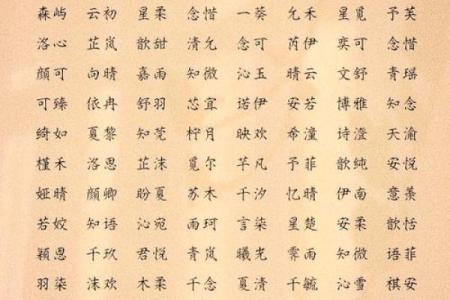 森屿 云初 星柔 念惜 一葵 允禾 星觅 予芙
洛心 芷岚 歆甜 清允 念可 芮伊 奕可 念惜
颜可 向晴 嘉雨 知微 沁玉 晴云 文舒 青瑶
可臻 依冉 舒羽 芯宜 诺伊 安若 博雅 知念
绮如 夏黎 知莞 柠月 映欢 希潼 诗澄 天渝
槿禾 洛思 芷沫 觅尔 芊凡 予菲 歆纯 安悦
娅晴 颜卿 盼夏 苏木 千汐 忆晴 伊南 意羡
若姣 知语 沁宛 雨珂 言染 星楚 安柔 歆恬
颖恩 千玖 君悦 青岚 曦光 霁雨 知微 语菲
羽染 沫欢 木柔 千念 夏清 千毓 沁雪 棋安